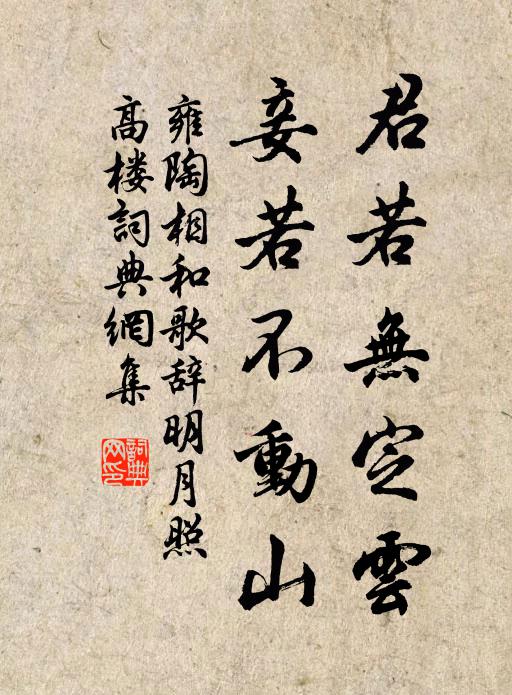 君若無定雲
妾若不動山
雍陶相和歌辞明月照
高楼詞典網集
詞典
网印